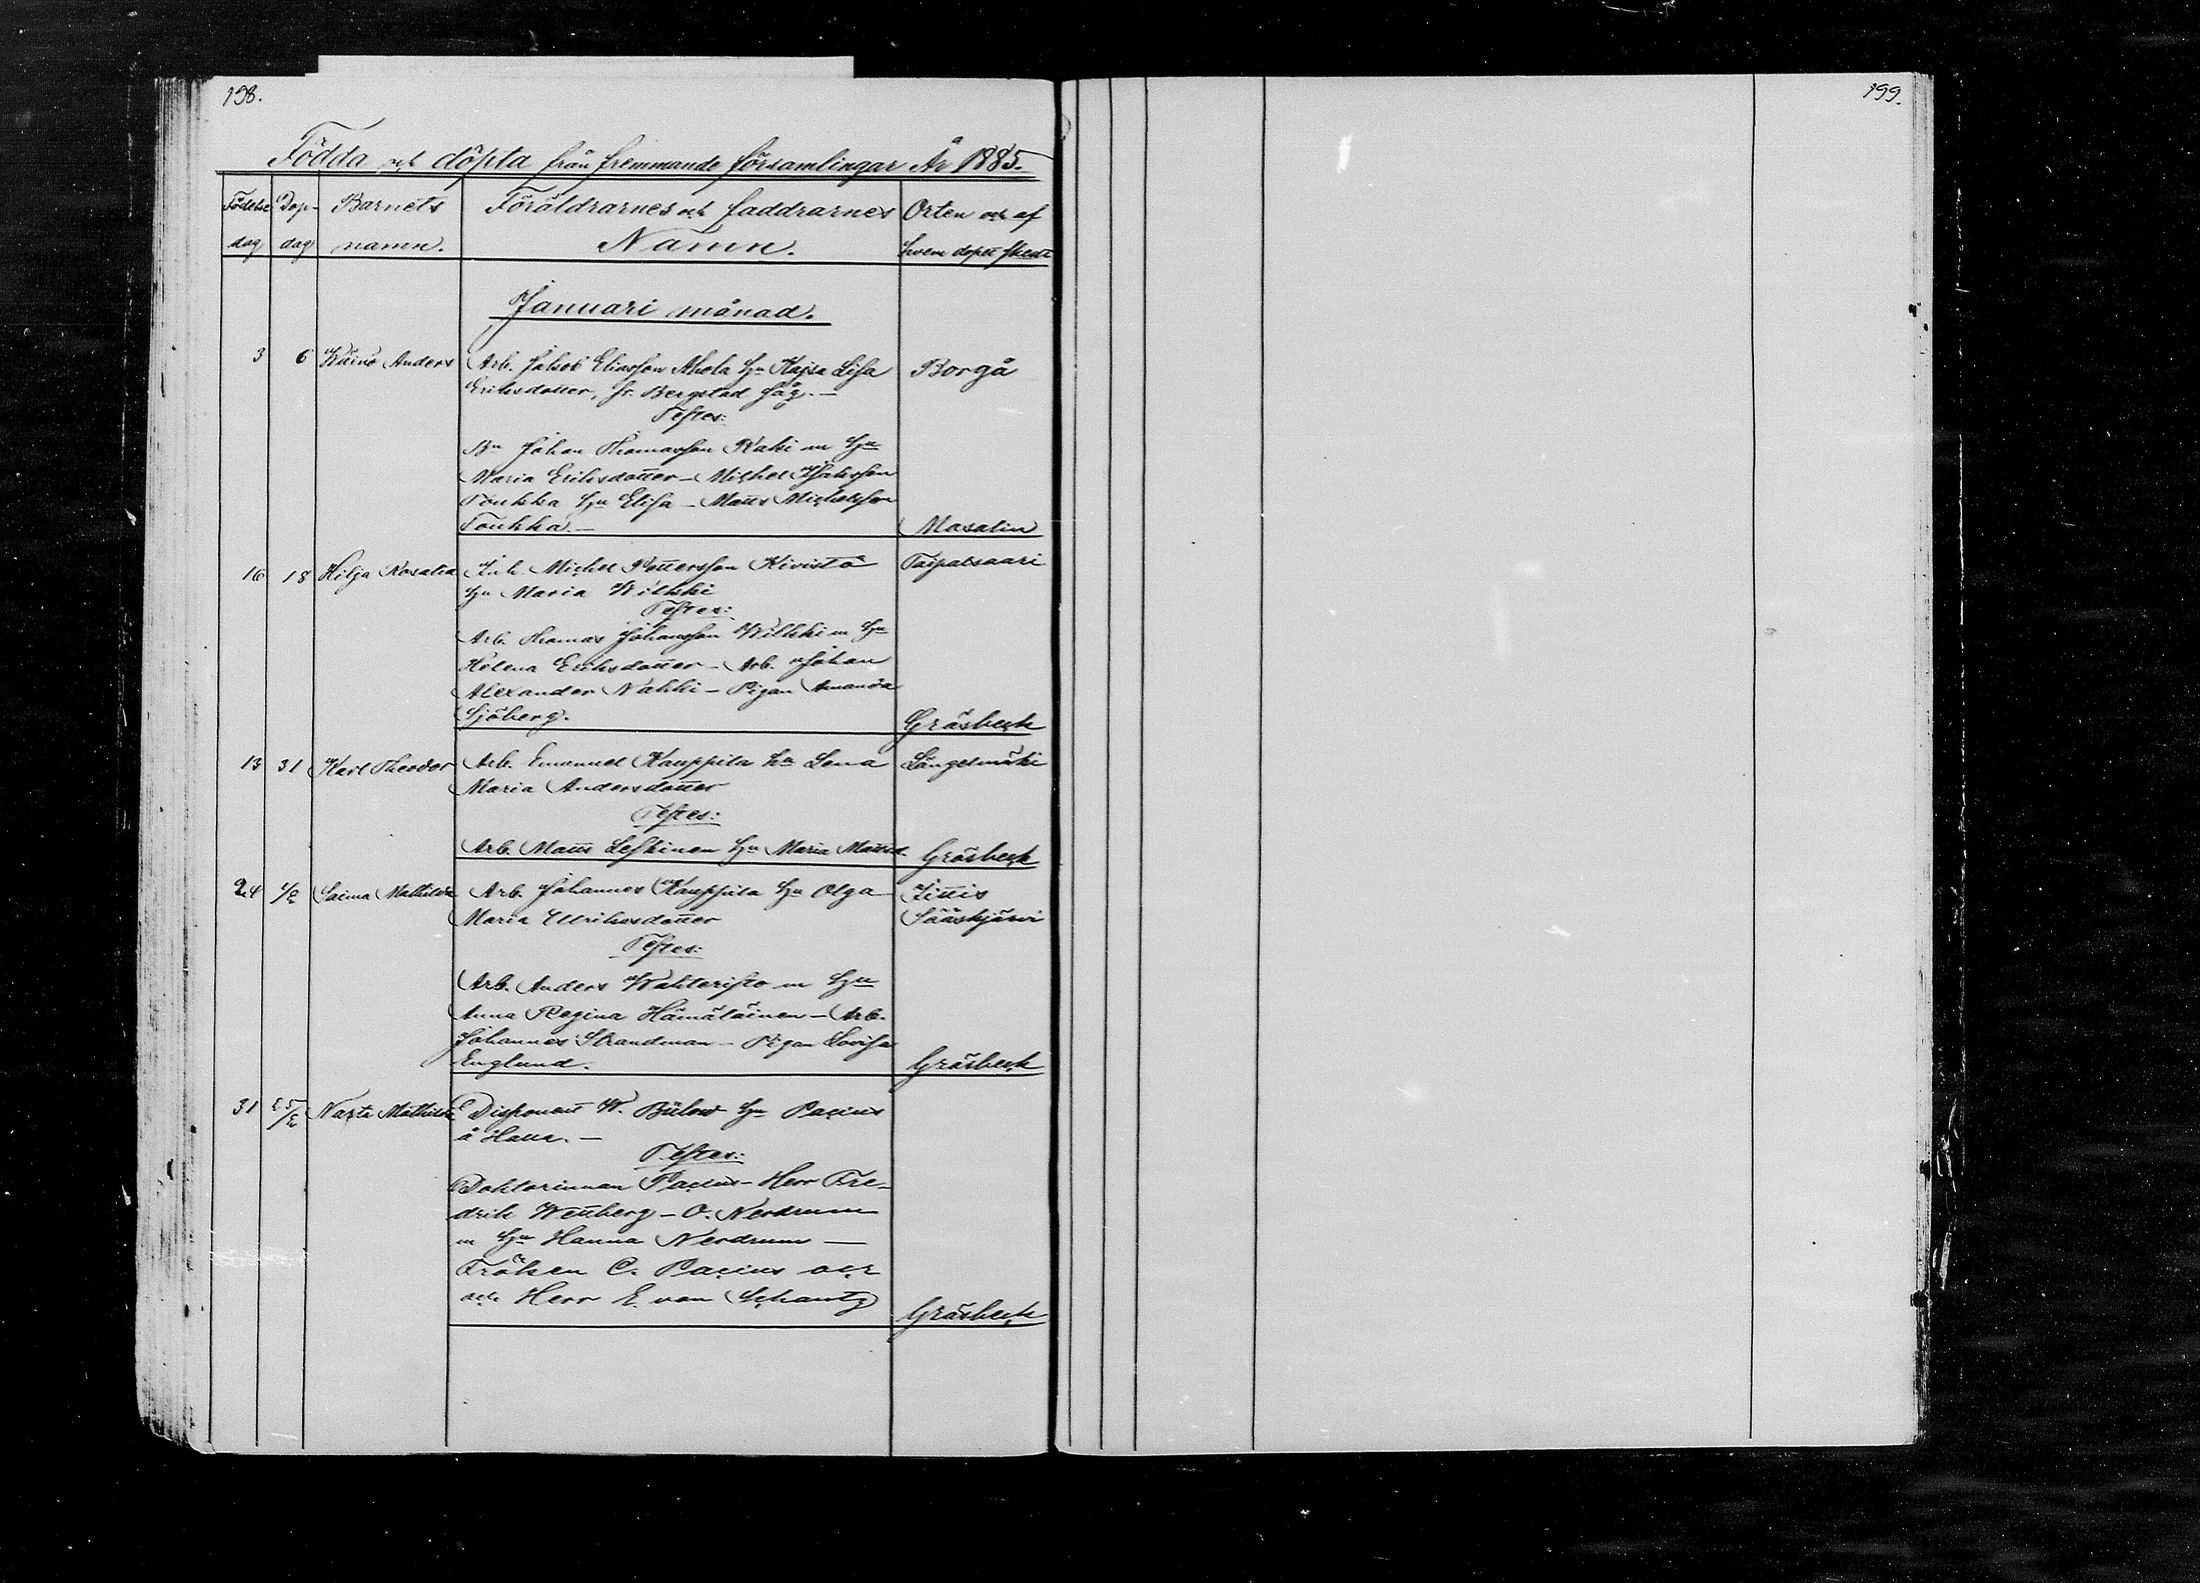 198.
199.
Födda och döpta från fremmande församlingar År 1885.
Födelse dag
Dop- dag
Barnets namn.
Föräldrarnes och faddrarnes Namn.
Orten och af hvem dopet skett
Januari månad.
3 6 Wäinö Anders Arb. Jakob Eliasson Ahola hu Kajsa Lisa Borgå
Eriksdotter, fr. Bergstad såg. —
Testes:
Bn Johan Thomasson Kaki m hu
Maria Eriksdotter — Michel Isaksson
Toukka hu Elisa — Matts Michelsson
Toukka. — Masalin
16 18 Hilja Rosalia Inh. Michel Pettersson Kivistö Taipalsaari
hu Maria Wilkki
Testes:
Arb. Thomas Johansson Wilkki m hu
Helena Eriksdotter — Arb. Johan
Alexander Nakki — Pigan Amanda
Sjöberg. Gräsbeck
13 31 Karl Theodor Arb. Emanuel Kauppila hu Lena Längelmäki
Maria Andersdotter
Testes:
Arb. Matts Leskinen hu Maria Mattsd. Gräsbeck
24 1/2 Saima Mathilda Arb. Johannes Kauppila hu Olga Iittis
Maria Ulriksdotter Sääskjärvi
Testes:
Arb. Anders Wahteristo m hu
Anna Regina Hämäläinen — Arb.
Johannes Strandman — Pigan Lovisa
Englund. Gräsbeck
31 25/2 Mathilda Disponent W. Bülow hu Pacius
å Halla. —
Testes:
Doktorinnan Pacius — Herr Fre-
drik Wettberg — O. Nerdrum
m hu Hanna Nerdrum —
Fröken C. Pacius och
och Herr E. von Schantz Gräsbeck